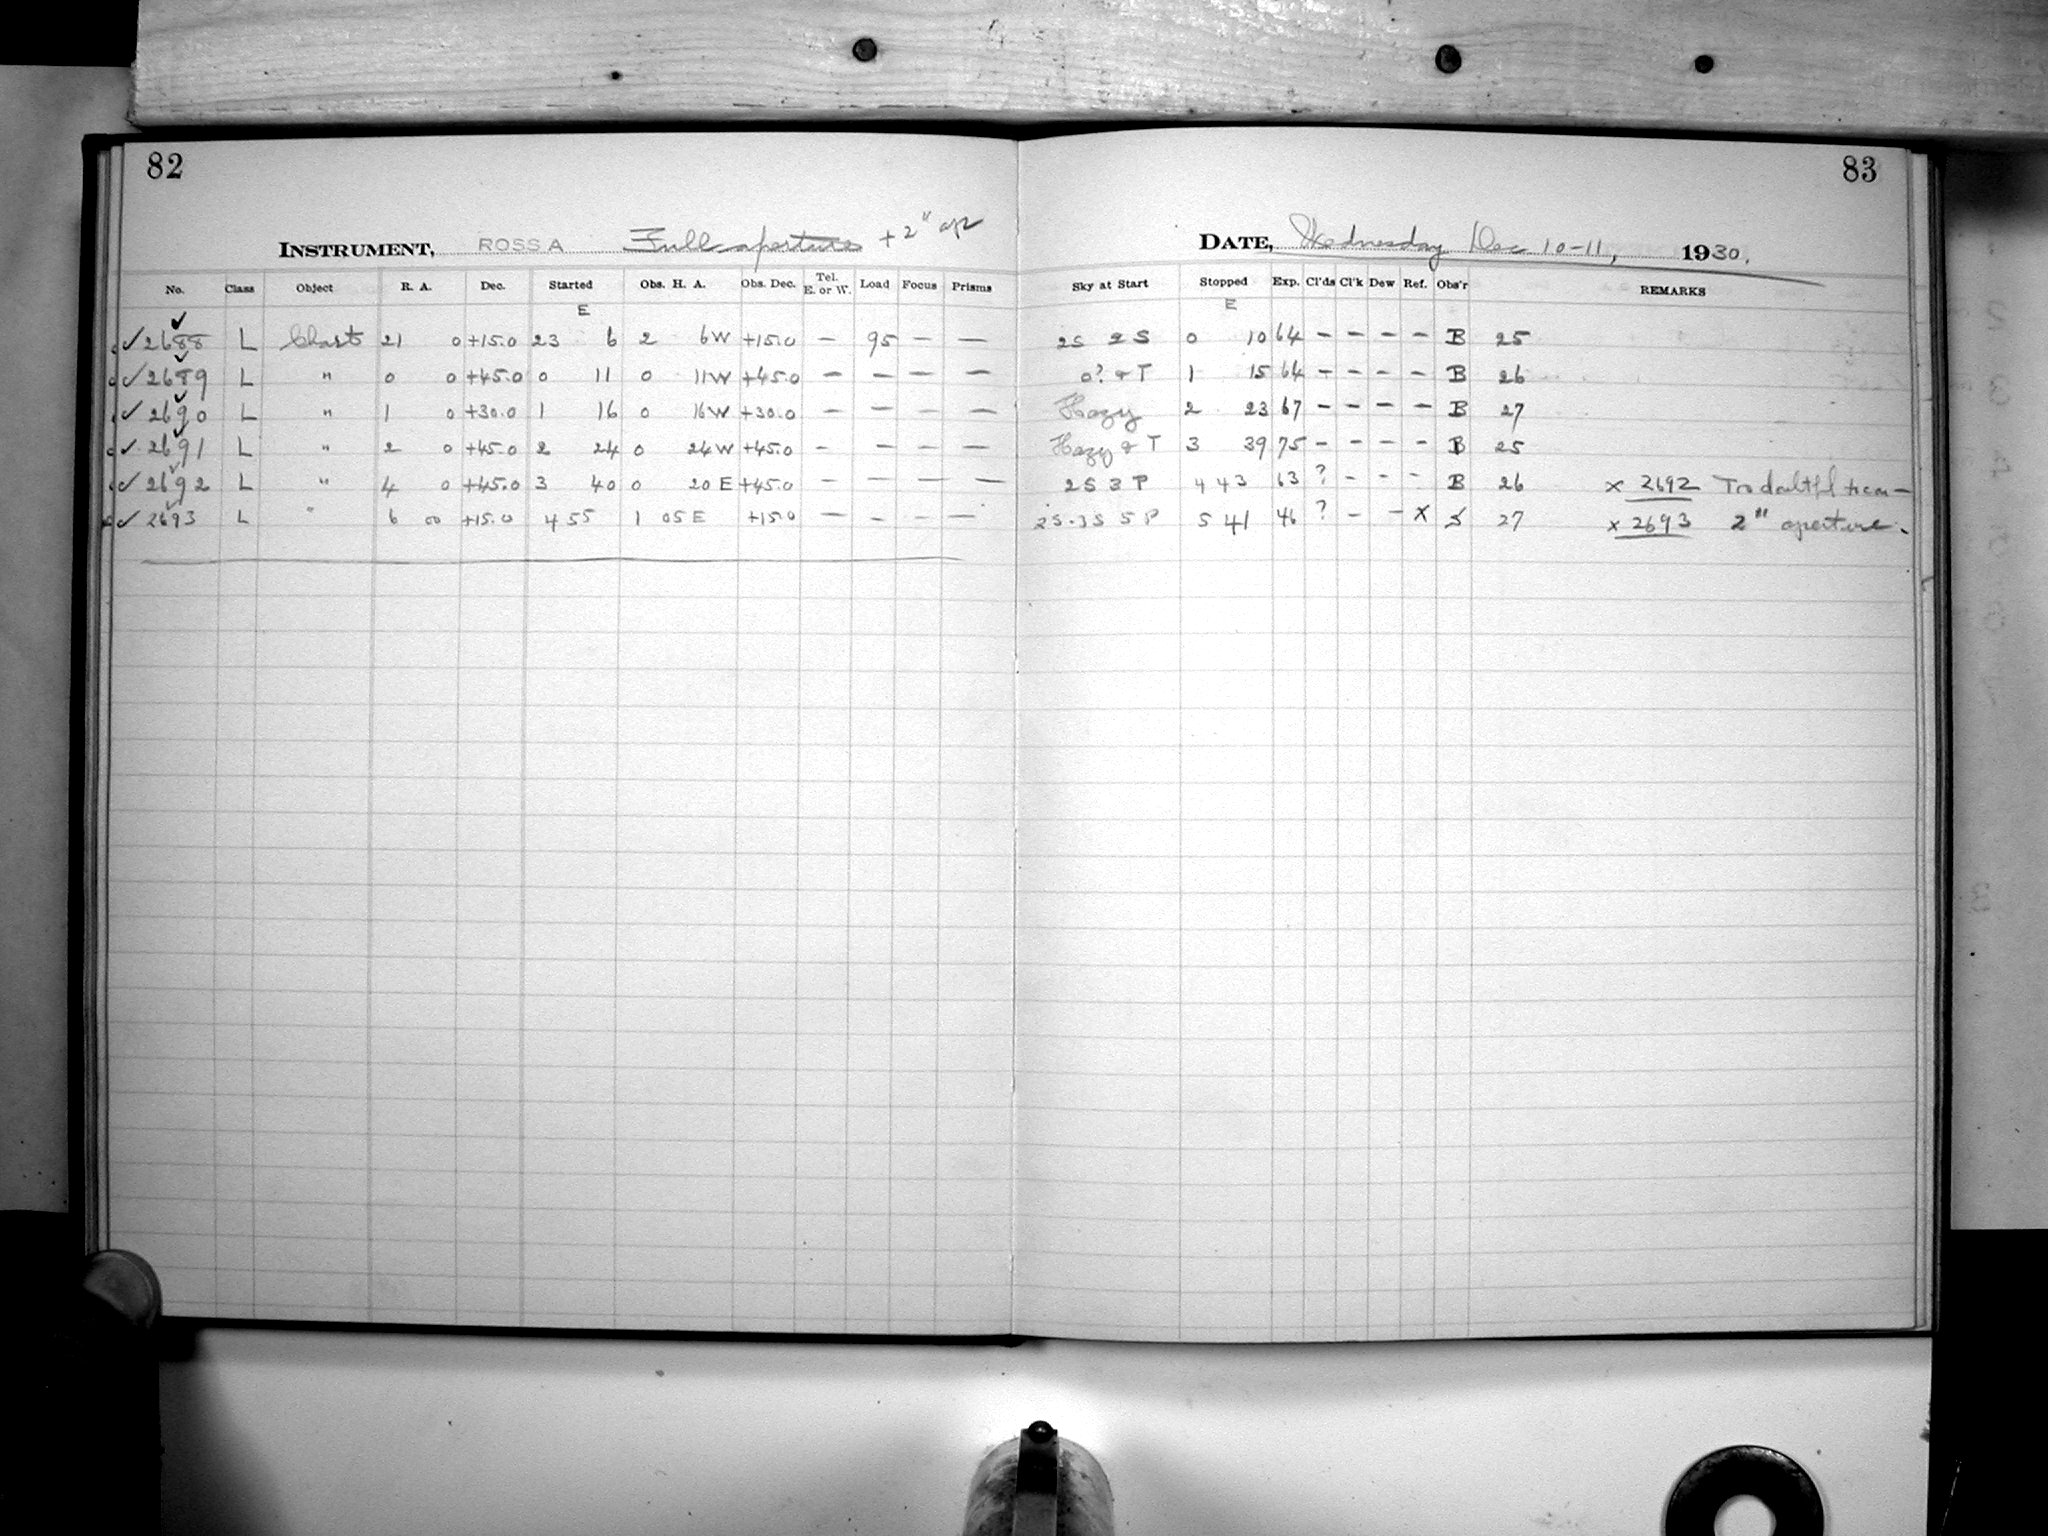 82
INSTRUMENT, ROSS A Full aperture + 2"
No. Class Object R. A. Dec. Started Obs. H. A. Obs. Dec. Tel. E. or W. Load Focus Prisms
E
✓ 2688 L Chart 21 0 +15.0 23 6 2 6 W +15.0 – 95 – –
✓ 2689 L " 0 0 +45.0 0 11 0 11 W +45.0 – – – –
✓ 2690 L " 1 0 +30.0 1 16 0 16 W +30.0 – – – –
✓ 2691 L " 2 0 +45.0 2 24 0 24 W +45.0 – – – –
✓ 2692 L " 4 0 +45.0 3 40 0 20 E +45.0 – – – –
✓ 2693 L " 6 00 +15.0 4 55 1 05 E +15.0 – – – –
83
DATE, Wednesday Dec 10-11, 1930.
Sky at Start Stopped Exp. Cl'ds Cl'k Dew Ref. Obs'r REMARKS
E
2S 2S 0 10 64 – – – – B 25
0? & T 1 15 64 – – – – B 26
Hazy 2 23 67 – – – – B 27
Hazy & T 3 39 75 – – – – B 25
2S 3 P 4 43 63 ? – – – B 26 x 2692 Too doubtful
2S-3S 5 P 5 41 46 ? – – X 27 x 2693 2" aperture.